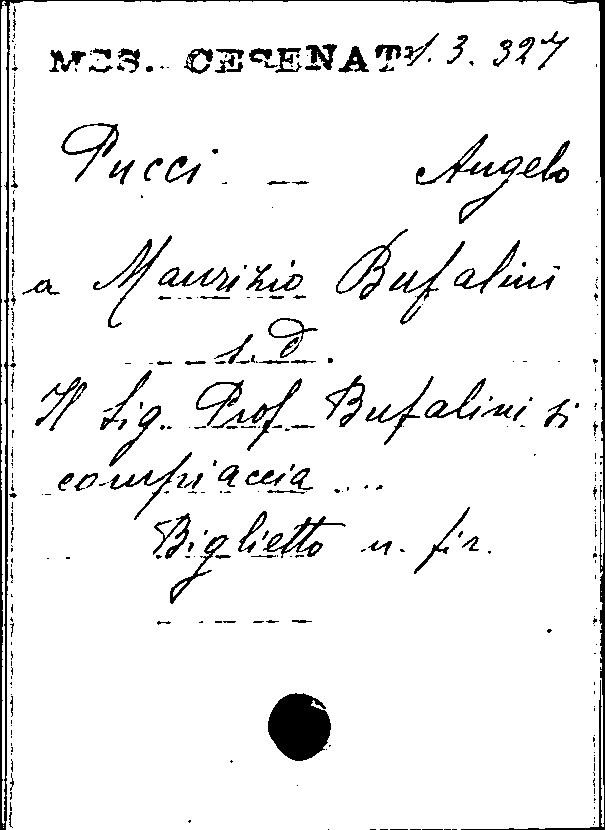 MSS. CESENATI 1.3.327
Pucci - Angelo
a Maurizio Bufalini
s. d.
Il Sig. Prof Bufalini si
compiaccia ...
Biglietto n. fir.